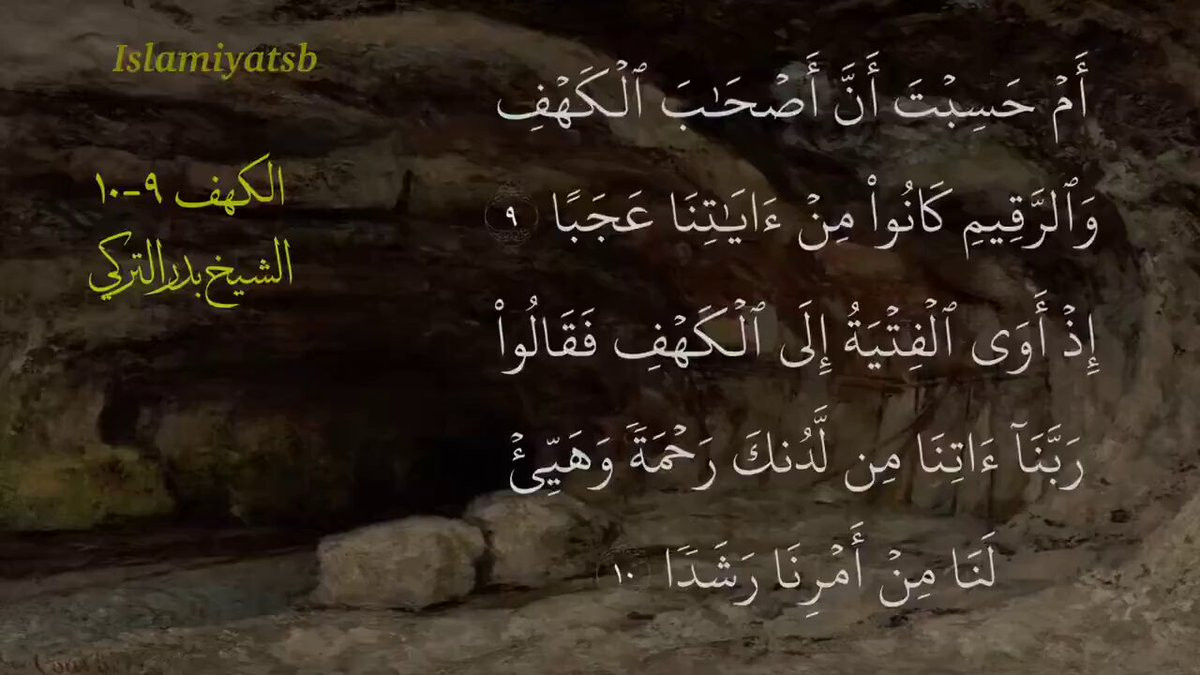 Islamiyatsb
الكهف ٩-١٠
الشيخ بدر التركي
أَمۡ حَسِبۡتَ أَنَّ أَصۡحَٰبَ ٱلۡكَهۡفِ
وَٱلرَّقِيمِ كَانُواْ مِنۡ ءَايَٰتِنَا عَجَبًا ٩
إِذۡ أَوَى ٱلۡفِتۡيَةُ إِلَى ٱلۡكَهۡفِ فَقَالُواْ
رَبَّنَآ ءَاتِنَا مِن لَّدُنكَ رَحۡمَةٗ وَهَيِّئۡ
لَنَا مِنۡ أَمۡرِنَا رَشَدٗا ١٠